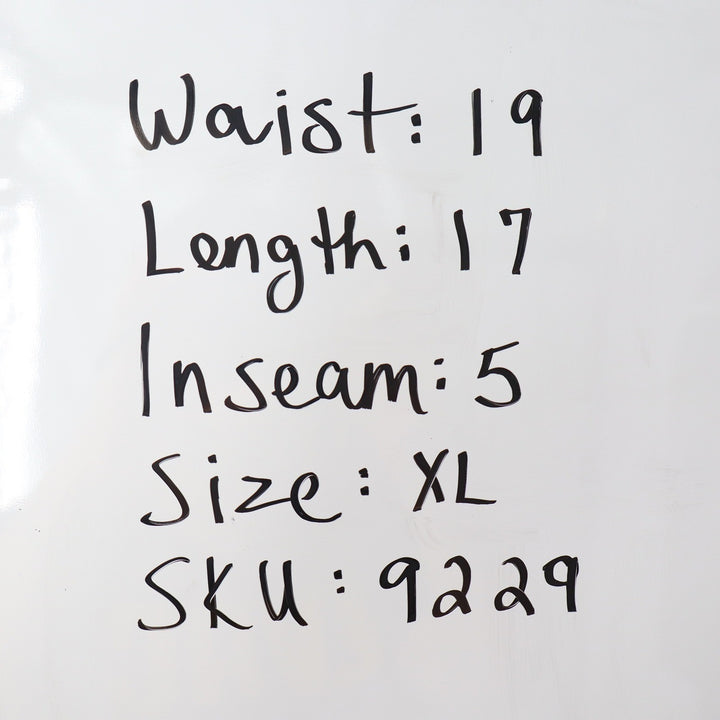 Waist: 19
Length: 17
Inseam: 5
Size: XL
SKU: 9229